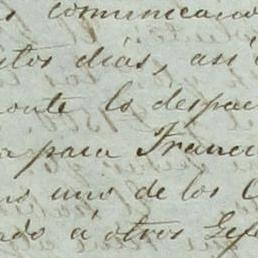 comunicado
stos días, así
onte lo despac
a para Franci
no uno de los C
ndo á otros Gefe